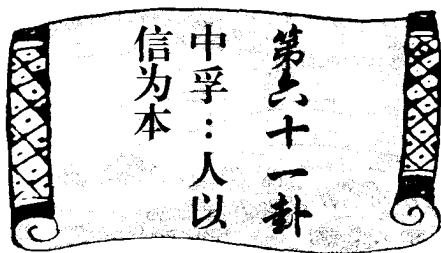 第六十一卦
中孚：人以
信为本